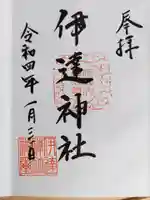 奉拝
伊達神社
令和四年一月二十日